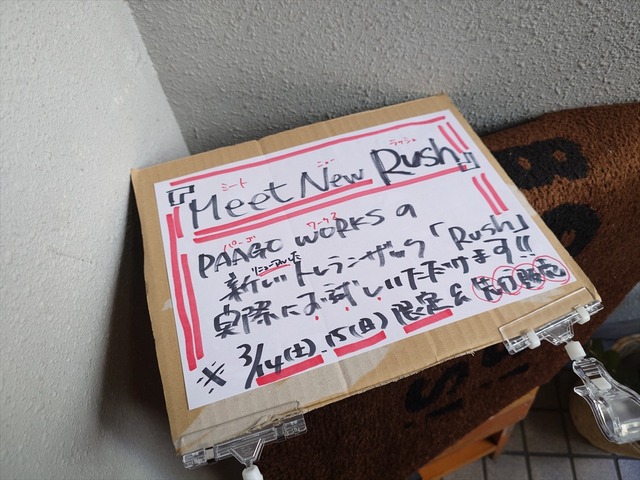 ミート ニュー ラッシュ
『Meet New Rush』
パーゴ ワークス
PAAGO WORKS の
リニューアルした
新しいトレランザック「Rush」
実際にお試しいただけます!!
※3/14(土)、15(日)限定&先行販売